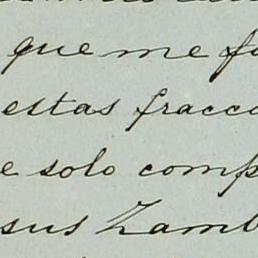 que me fa
estas fracc
e solo comp
sus Zamb